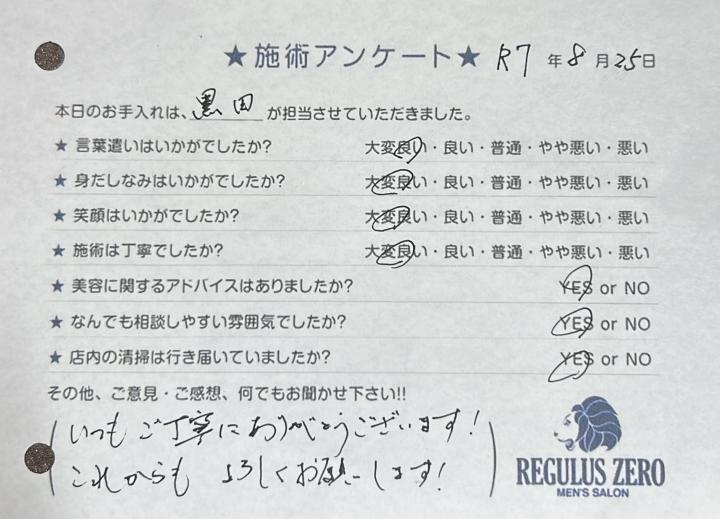 ★施術アンケート★ R7年8月25日
本日のお手入れは、黒田が担当させていただきました。
★ 言葉遣いはいかがでしたか? 大変良い・良い・普通・やや悪い・悪い
★ 身だしなみはいかがでしたか? 大変良い・良い・普通・やや悪い・悪い
★ 笑顔はいかがでしたか? 大変良い・良い・普通・やや悪い・悪い
★ 施術は丁寧でしたか? 大変良い・良い・普通・やや悪い・悪い
★ 美容に関するアドバイスはありましたか? YES or NO
★ なんでも相談しやすい雰囲気でしたか? YES or NO
★ 店内の清掃は行き届いていましたか? YES or NO
その他、ご意見・ご感想、何でもお聞かせ下さい!!
いつもご丁寧にありがとうございます!
これからもよろしくお願いします!
REGULUS ZERO
MEN'S SALON